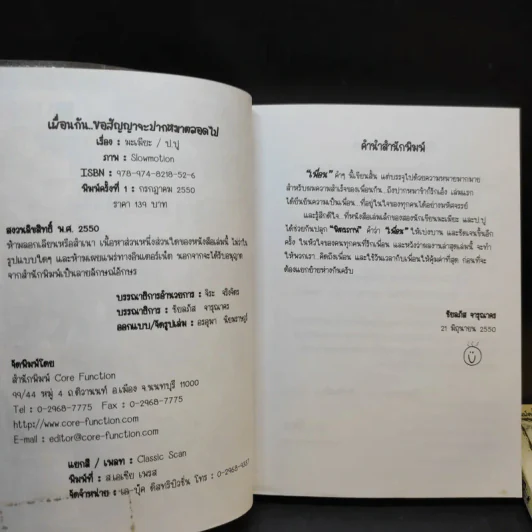 เพื่อนกัน..ขอสัญญาจะปากหมาตลอดไป
เรื่อง : มะเหมี่ยะ / ป.ปู
ภาพ : Slowmotion
ISBN : 978-974-8218-52-6
พิมพ์ครั้งที่ 1 : กรกฎาคม 2550
ราคา 139 บาท
สงวนลิขสิทธิ์ พ.ศ. 2550
ห้ามลอกเลียนหรือสำเนา เนื้อหาส่วนหนึ่งส่วนใดของหนังสือเล่มนี้ ไม่ว่าใน
รูปแบบใดๆ และห้ามเผยแพร่ทางอินเตอร์เน็ต นอกจากจะได้รับอนุญาต
จากสำนักพิมพ์เป็นลายลักษณ์อักษร
บรรณาธิการอำนวยการ : จิระ จริงจิตร
บรรณาธิการ : ชัยลภัส จารุณาคร
ออกแบบ/จัดรูปเล่ม : อรอุมา
จัดพิมพ์โดย
สำนักพิมพ์ Core Function
99/44 หมู่ 4 ถ.ติวานนท์ อ.เมือง จ.นนทบุรี 11000
Tel : 0-2968-7775 Fax : 0-2968-7775
http://www.core-function.com
E-mail : editor@core-function.com
แยกสี / เพลท : Classic Scan
พิมพ์ที่ : ส.เอเซีย เพรส
จัดจำหน่าย : เอ-บุ๊ค ดิสทริบิวชั่น โทร : 0-2968-9337
คำนำสำนักพิมพ์
"เพื่อน" คำๆ นี้เขียนสั้น แต่บรรจุไปด้วยความหมายมากมาย
สำหรับผมความสำเร็จของเพื่อนกัน..ถึงปากหมาก็รักเอ็ง เล่มแรก
ได้ยืนยันความเป็นเพื่อน..ที่อยู่ในใจของทุกคนได้อย่างมหัศจรรย์
และรู้สึกดีใจ ที่หนังสือเล่มเล็กของสองนักเขียนมะเหมี่ยะ และป.ปู
ได้ช่วยกันปลุก "มิตรภาพ" คำว่า "เพื่อน" ให้เบ่งบาน และชัดเจนขึ้นอีก
ครั้ง ในหัวใจของคนทุกคนที่รักเพื่อน และหวังว่าผลงานล่าสุดเล่มนี้ จะทำ
ให้พวกเรา คิดถึงเพื่อน และใช้วันเวลากับเพื่อนให้คุ้มค่าที่สุด ก่อนที่จะ
ต้องแยกย้ายห่างกันครับ
ชัยลภัส จารุณาคร
21 มิถุนายน 2550